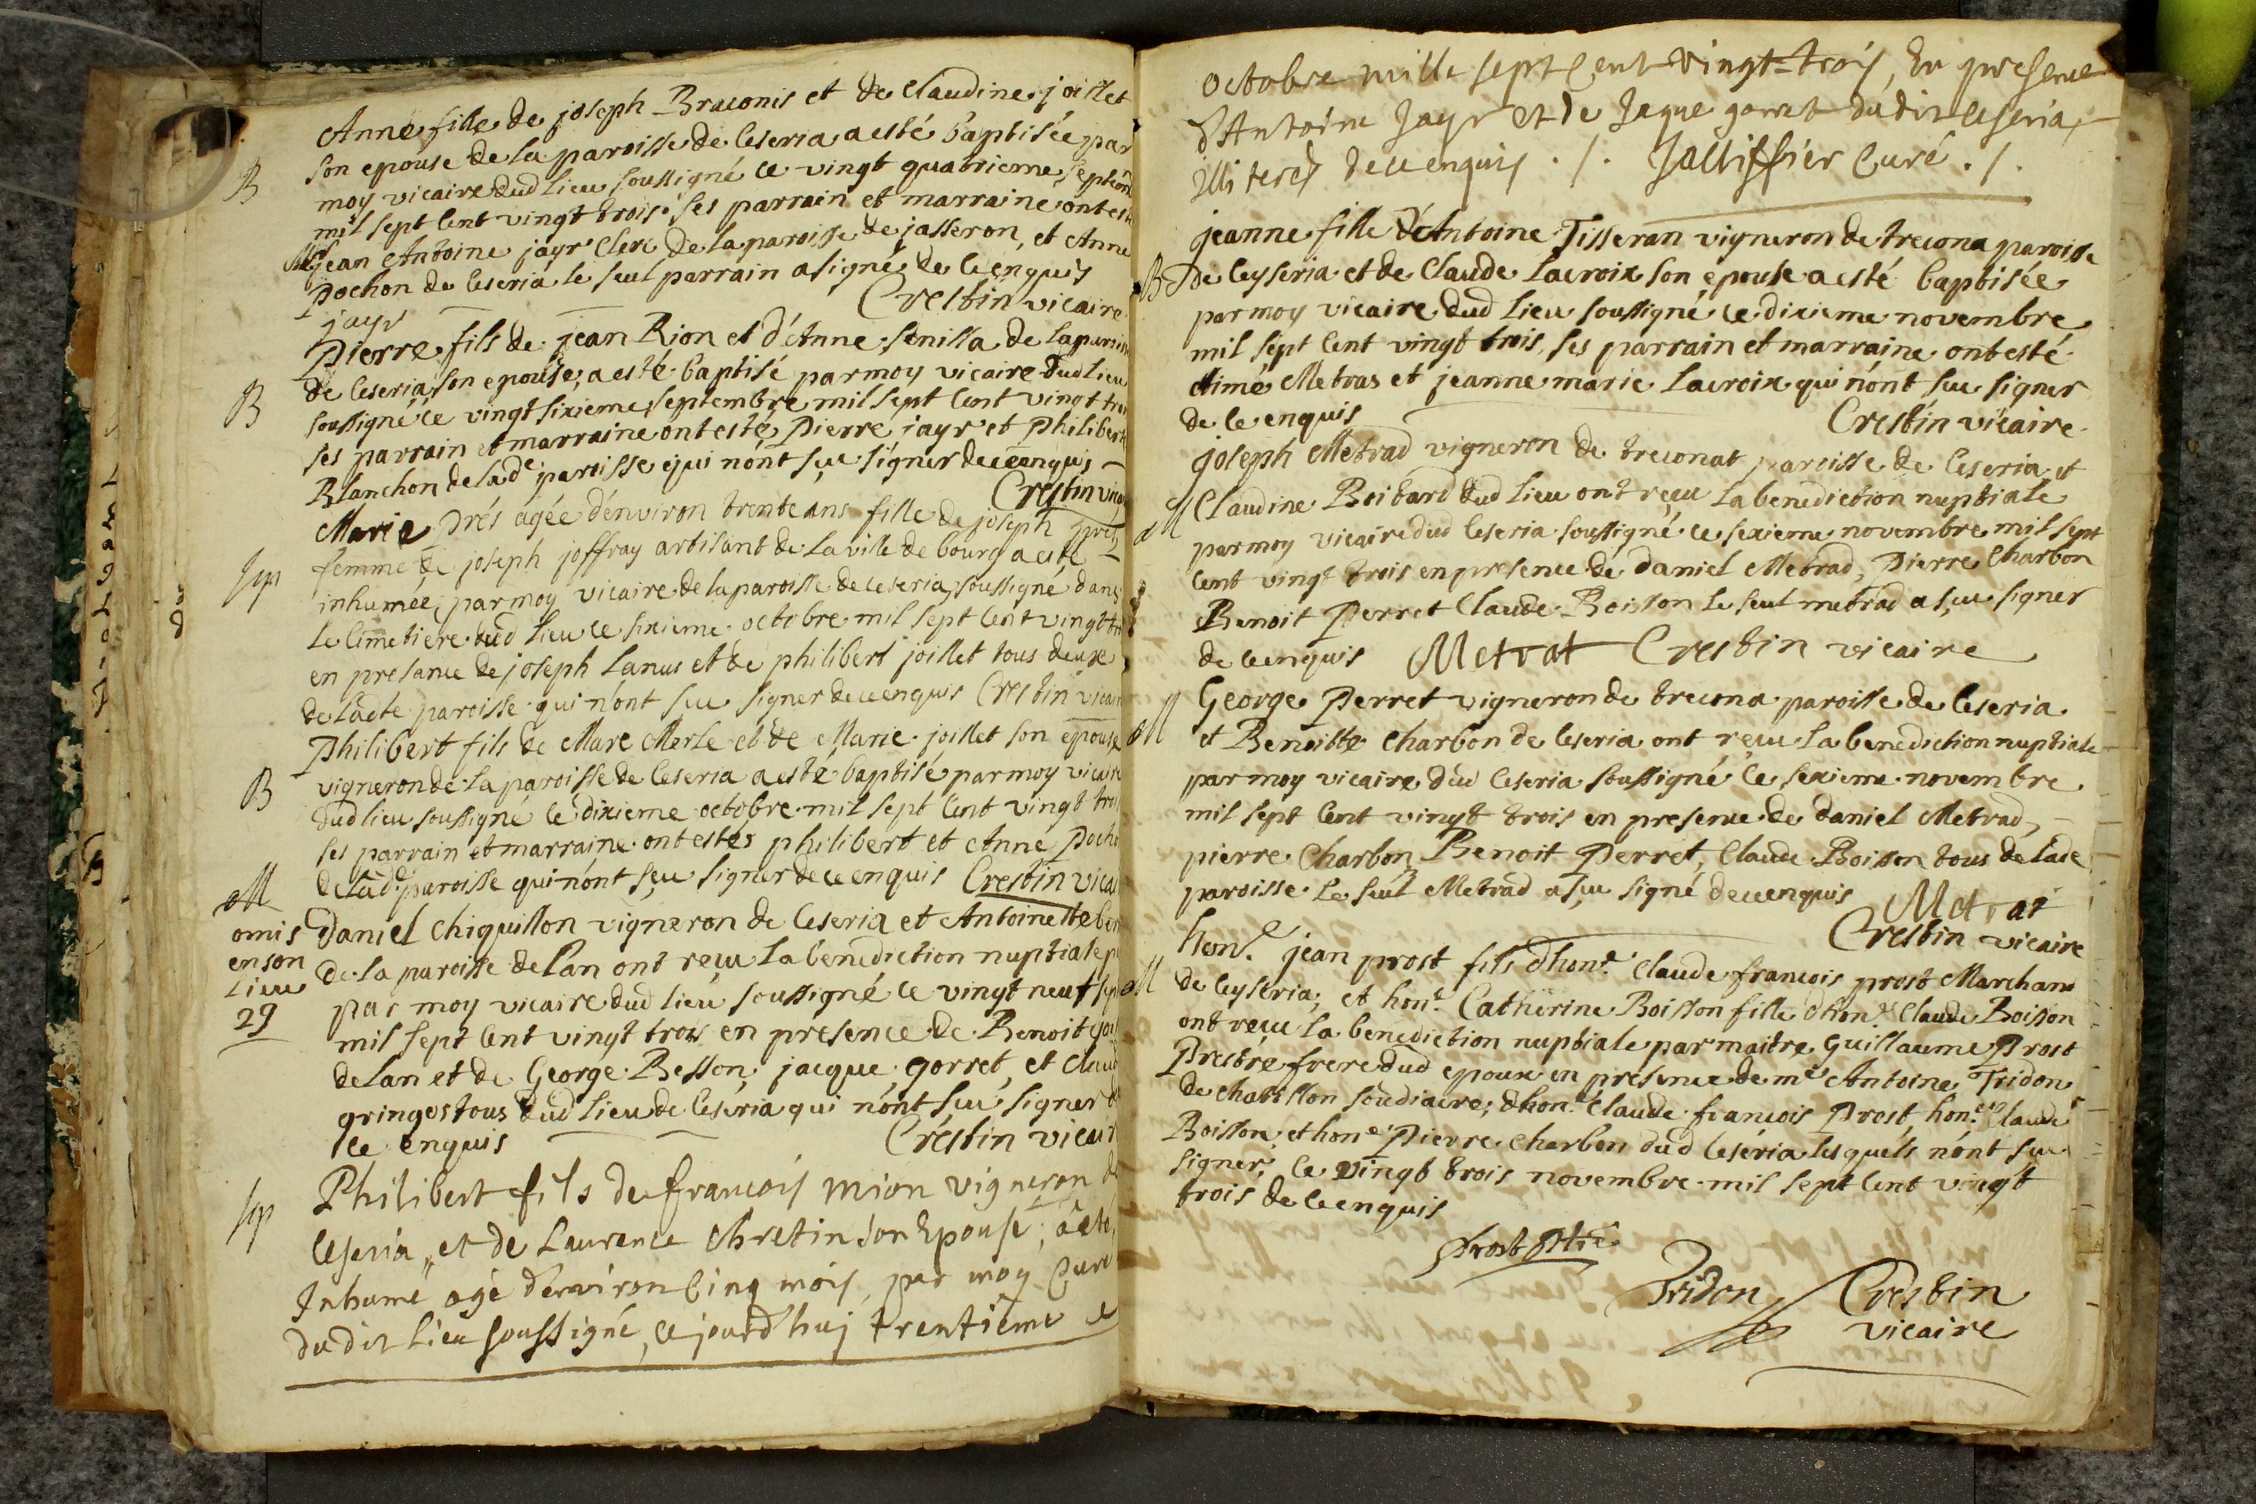 Anne fille de joseph Braconis et de Claudine joillet
B
son epouse de la paroisse de Ceseria a esté baptisée par
moy vicaire dud lieu soussigné ce vingt quatrieme septem
mil sept cent vingt trois ses parrain et marraine ont esté
jean Antoine jayr Clerc de la paroisse de jasseron, et Anne
Pochon de Ceseria le seul parrain a signé de ce enquis
jayr Crestin vicaire
Pierre fils de jean Rion et d'Anne senilla de la paroi
B
de Ceseria son epouse, a esté baptisé par moy vicaire dud lieu
soussigné ce vingt sixieme septembre mil sept cent vingt tro
ses parrain et marraine ont esté Pierre jayr et Philiberte
Blanchon de lad.e paroisse qui n'ont sçu signer de ce enquis
Crestin vica
Marie Prés agée d'environ trente ans fille de joseph prés
Sep
femme de joseph joffray artisant de la ville de bourg a esté
inhumée, par moy vicaire de la paroisse de Ceseria soussigné dans
le Cimetiere dud lieu ce sixieme octobre mil sept cent vingt tr
en presance de joseph Lanus et de philibert joillet tous deux
de ladte paroisse qui n'ont sçu signer de ce enquis Crestin vicair
Philibert fils de Marc Merle et de Marie joillet son epouse
B
vigneron de la paroisse de Ceseria a esté baptisé par moy vicaire
dud lieu soussigné ce dixieme octobre mil sept cent vingt troi
ses parrain et marraine ont estés philibert et Anne Pocho
de lad.e paroisse qui n'ont sçu signer de ce enquis Crestin vica
M
omis
en son
lieu
29
Daniel Chiquillon vigneron de Ceseria et Antoinette ber
de la paroisse de Lan ont reçu la benediction nuptiale p
par moy vicaire dud lieu soussigné ce vingt neuf sep
mil sept cent vingt trois en presence de Benoit gou
de Lan et de George Besson, jacque gorret, et Claud
gringos tous dud lieu de Ceseria qui n'ont sçu signer d
ce enquis Crestin vicair
Sep
Philibert fils de francois mion vigneron de
Ceseria, et de Laurence Chretin son Epouse, a eté
Inhumé agé d'environ Cinq mois, par moy Curé
dudit Lieu soussigné, ce jourd'huj trentiéme
octobre mille sept Cent vingt-trois, En presence
d'Antoine Jayr et de Jaque gorret dudit Ceseria,
illiterés de ce enquis ./. Jalliffier Curé ./.
jeanne fille d'Antoine Tisseran vigneron de trecona paroisse
B
de Ceyseria et de Claude Lacroix son epouse a esté baptisée
par moy vicaire dud lieu soussigné ce dixieme novembre
mil sept cent vingt trois, ses parrain et marraine ont esté
Aimé Metras et jeanne marie Lacroix qui n'ont sçu signer
de ce enquis Crestin vicaire
joseph Metrad vigneron de treconat paroisse de Ceseria et
M
Claudine Boitard dud lieu ont reçu la benediction nuptiale
par moy vicaire dud Ceseria soussigné ce sixieme novembre mil sept
cent vingt trois en presence de daniel Metrad, Pierre Charbon
Benoit Perret Claude Boisson le seul metrad a sçu signer
de ce enquis Metrat Crestin vicaire
George Perret vigneron de trecona paroisse de Ceseria
M
et Benoitte Charbon de Ceseria ont reçu la benediction nuptiale
par moy vicaire dud Ceseria soussigné ce sixieme novembre
mil sept cent vingt trois en presence de daniel Metrad,
pierre Charbon Benoit Perret, Claude Boisson tous de lade
paroisse le seul Metrad a sçu signé de ce enquis Metrat
Crestin vicaire
hon.e jean prost fils d'hon.e Claude francois prost Marchand
M
de Ceyseria, et hon.e Catherine Boisson fille d'hon.e Claude Boisson
ont reçu la benediction nuptiale par maitre Guillaume Prost
Prestre frere dud epoux en presence de m.e Antoine Tridon
de chatillon soudiacre, d'hon.e Claude francois Prost, hon.e Claude
Boisson, et hon.e Pierre Charbon dud Ceséria lesquels n'ont sçu
signer, ce vingt trois novembre mil sept cent vingt
trois de ce enquis
Prost Ptre
Tridon Crestin
vicaire